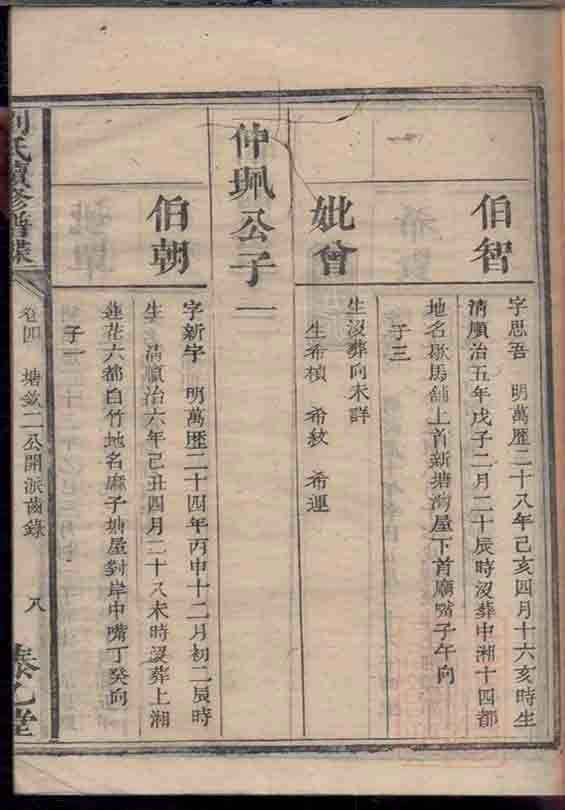 伯智
字思吾 明萬歷二十八年己亥四月十六亥時生
清順治五年戊子二月二十辰時沒葬中湘十四都
地名歇馬舖上首新塘灣屋下首廟嘴子午向
子三
妣曾
生沒葬向未詳
生希楨 希敘 希運
仲珮公子一
伯朝
字新宇 明萬歷二十四年丙申十二月初二辰時
生 清順治六年己丑四月二十八未時沒葬上湘
蓮花六都白竹地名麻子塘屋對岸中嘴丁癸向
子一
劉氏續修譜牒
卷四 塘 二公開派齒錄
八
泰乙堂